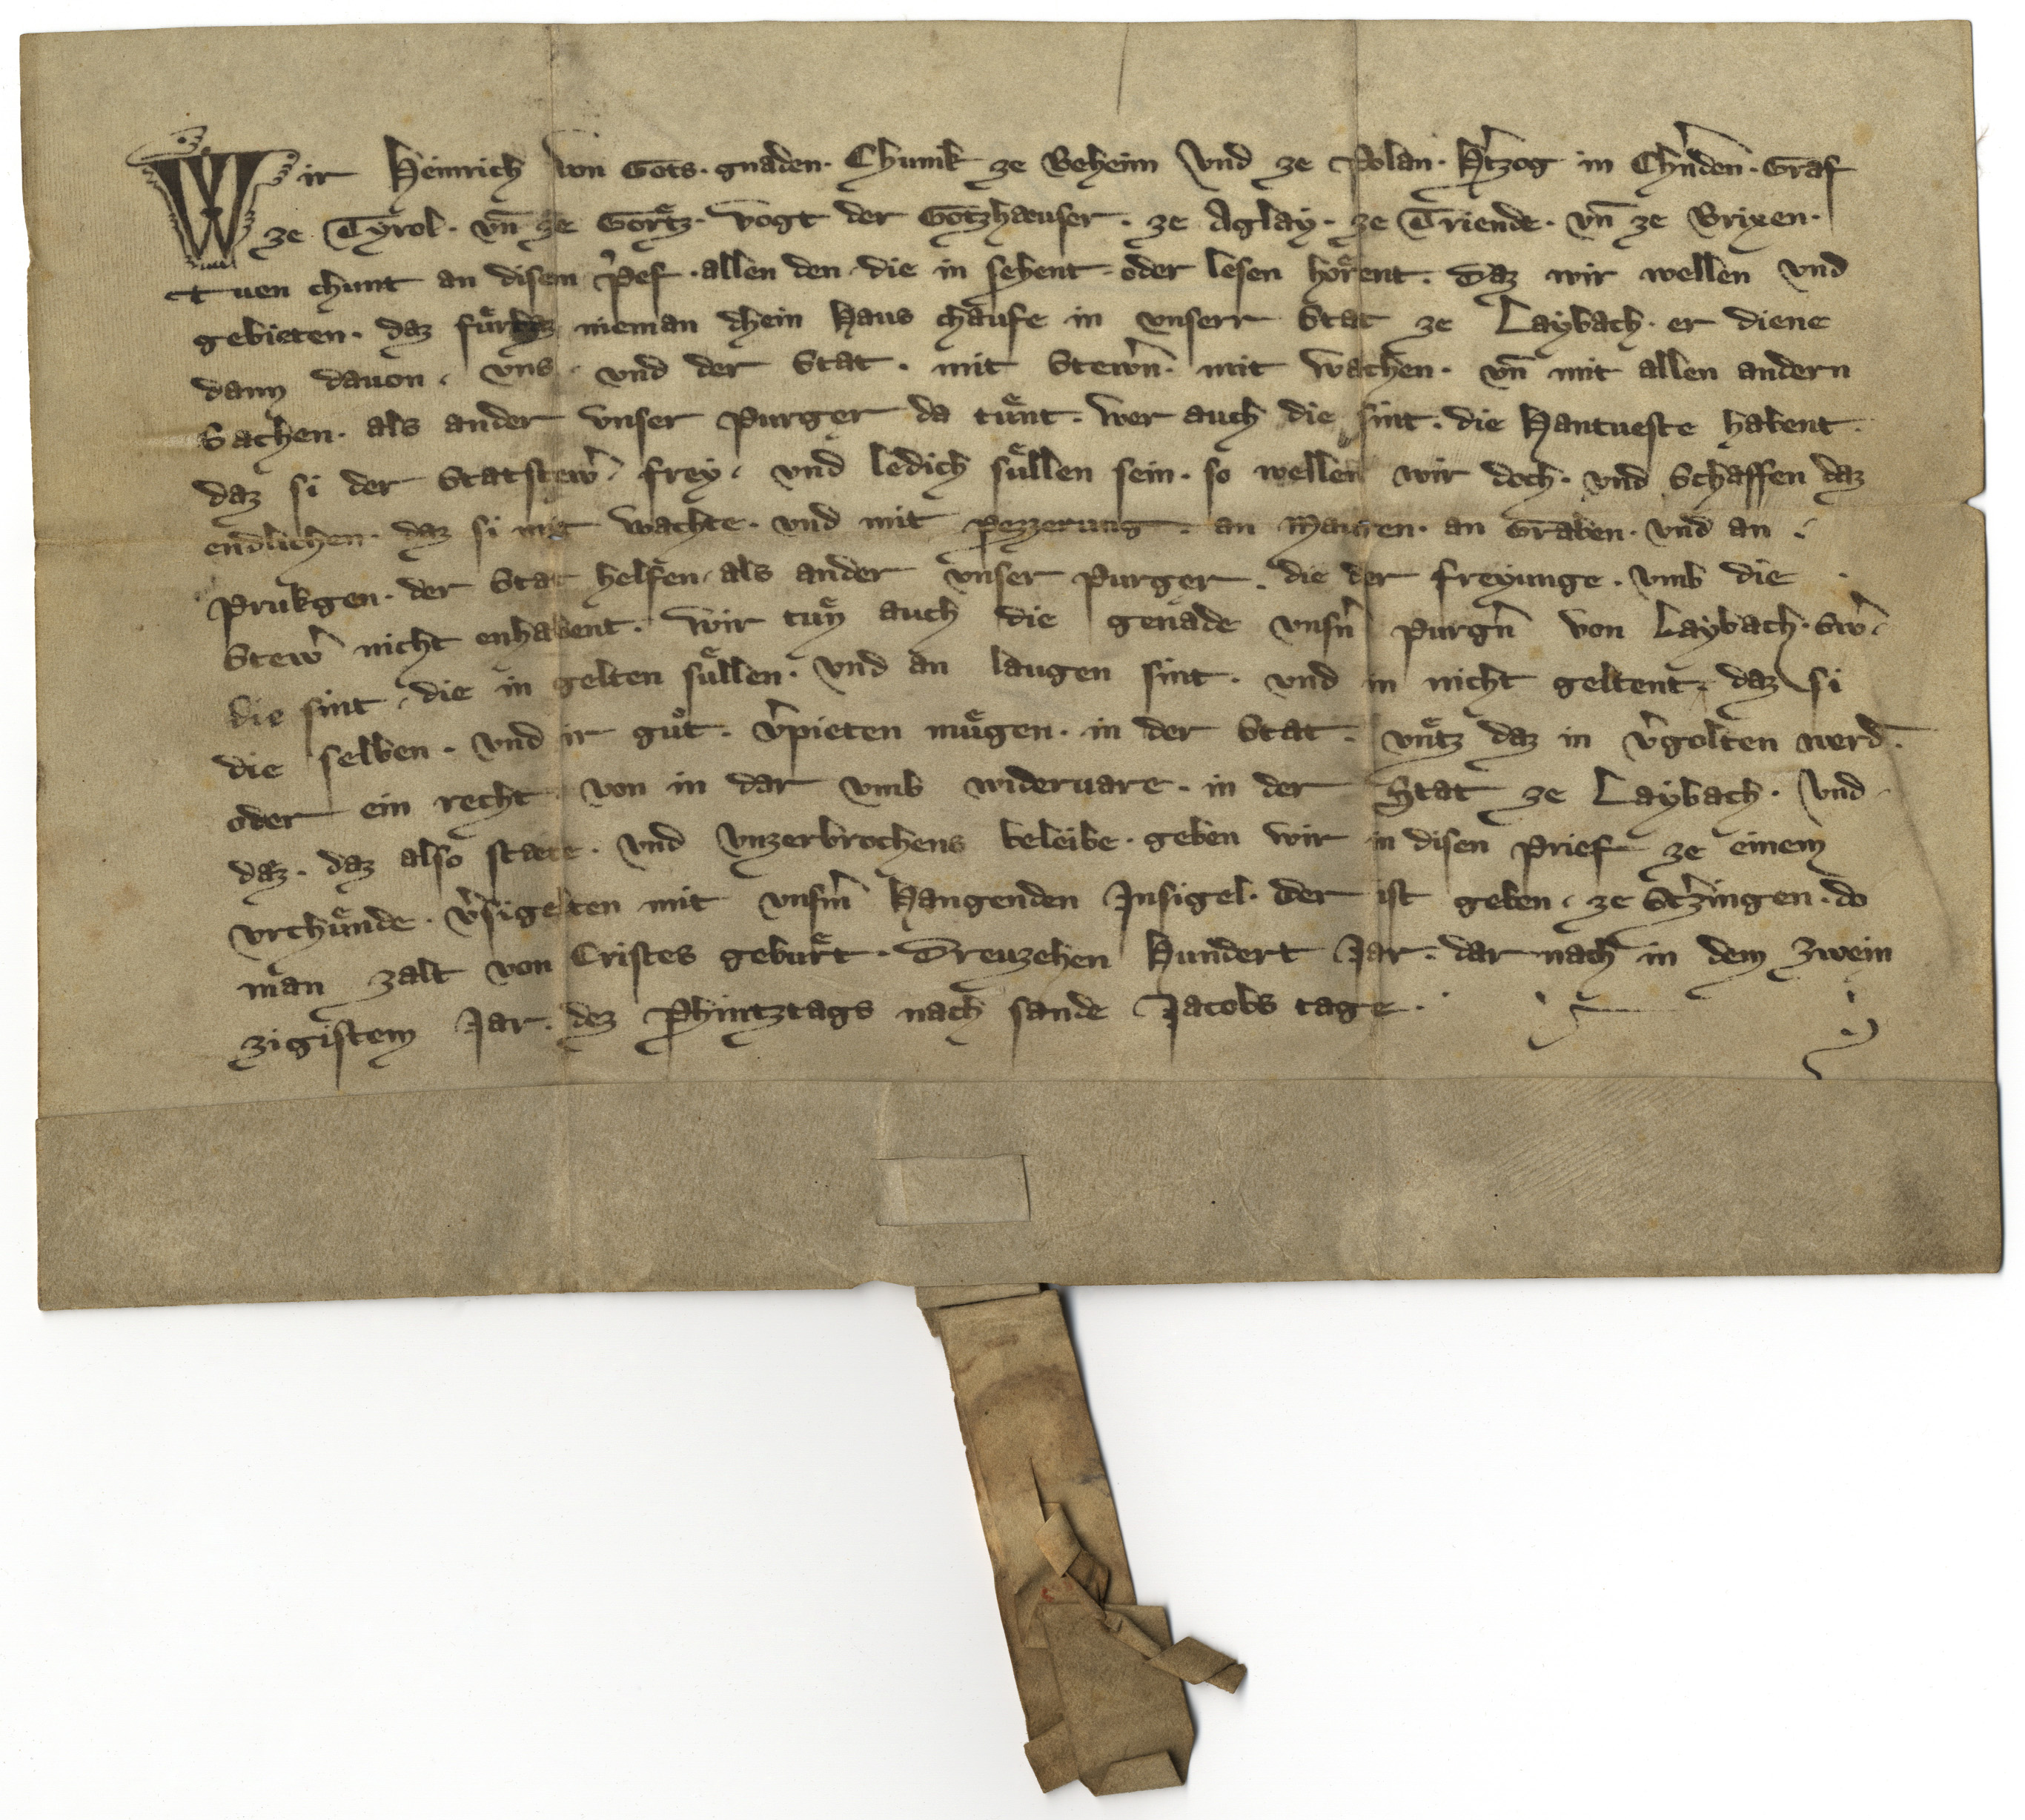 Wir Heinrich von Gots · gnaden · Chunik ze Beheim vnd ze Polan · H̕tzog in Ch̕nden · Graf
ze Tyrol · vn̄ ze Goͤrtz · vogt der Gotzhæuser · ze Aglay · ze Triende · vn̄ ze Brixen ·
Tuen chunt an disem p̕ef · allen den · die in sehent · oder lesen hoͤrent · daz wir wellen vnd
gebieten · daz fuͤrbaz nieman dhein Haus chaufe in vnserr Stat ze Laybach · er diene
dann dauon · vns · vnd der Stat · mit Stewr̄n · mit wachen · vn̄ mit allen andern
Sachen · als ander vnser purger da tuͤnt · wer auch die sint · die Hantueste habent ·
daz si der Statstew̕ · frey · vnd ledich suͤllen sein · so wellen wir doch · vnd Schaffen daz
endlichen · daz si mit wachte · vnd mit pezzerung · an Mauren · an Graben · vnd an ·
Prukgen · der Stat helfen · als ander vnser purger · die der freyunge · vmb die ·
Stew̕ nicht enhabent · wir tuͤn auch die genade vnsn̕ purgn̕ von Laybach · Sw̕ ·
die sint · die in gelten suͤllen · vnd an laugen sint · vnd in nicht geltent · daz si
die selben · vnd ir guͦt · v̕pieten muͤgen · in der Stat · vntz daz in v̕golten werd̄ ·
oder ein recht von in dar vmb wideruare · in der Stat ze Laybach · vnd ·
daz · daz also stæte · vnd vnzerbrochens beleibe · geben wir in disen prief ze einem
vrchuͤnde · v̕sigelten mit vnsm̕ Hangenden Insigel · der ist geben · ze St̕zingen · do
man zalt von Cristes gebuͤrt · Dreuzehen Hundert Jar · dar nach in dem Zwein
zigistem Jar · dez Phintztags nach sande Jacobs tage ·